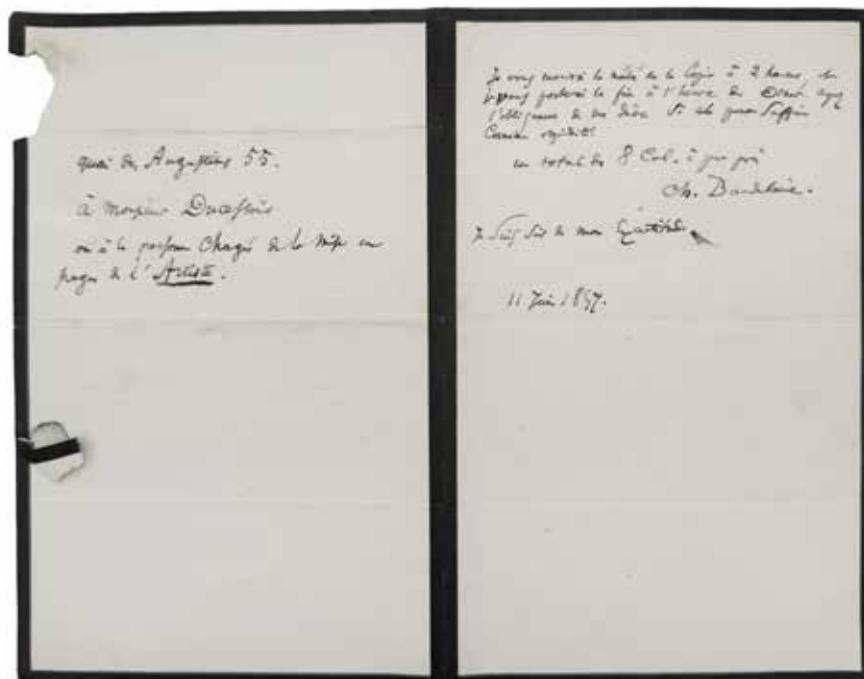 quai des Augustins 55.
à Monsieur Ducessois
ou à la personne Chargée de la Mise en
pages de l'Artiste.
Je vous enverrai la moitié de la Copie à 2 heures, et
je vous porterai la fin à l'heure du Diner. Ayez
l'obligeance de me dire si cela peut suffire
Comme rapidité.
un total de 8 Col. à peu près
Ch. Baudelaire.
Je suis sûr de mon Exactitude.
11 Juin 1857.